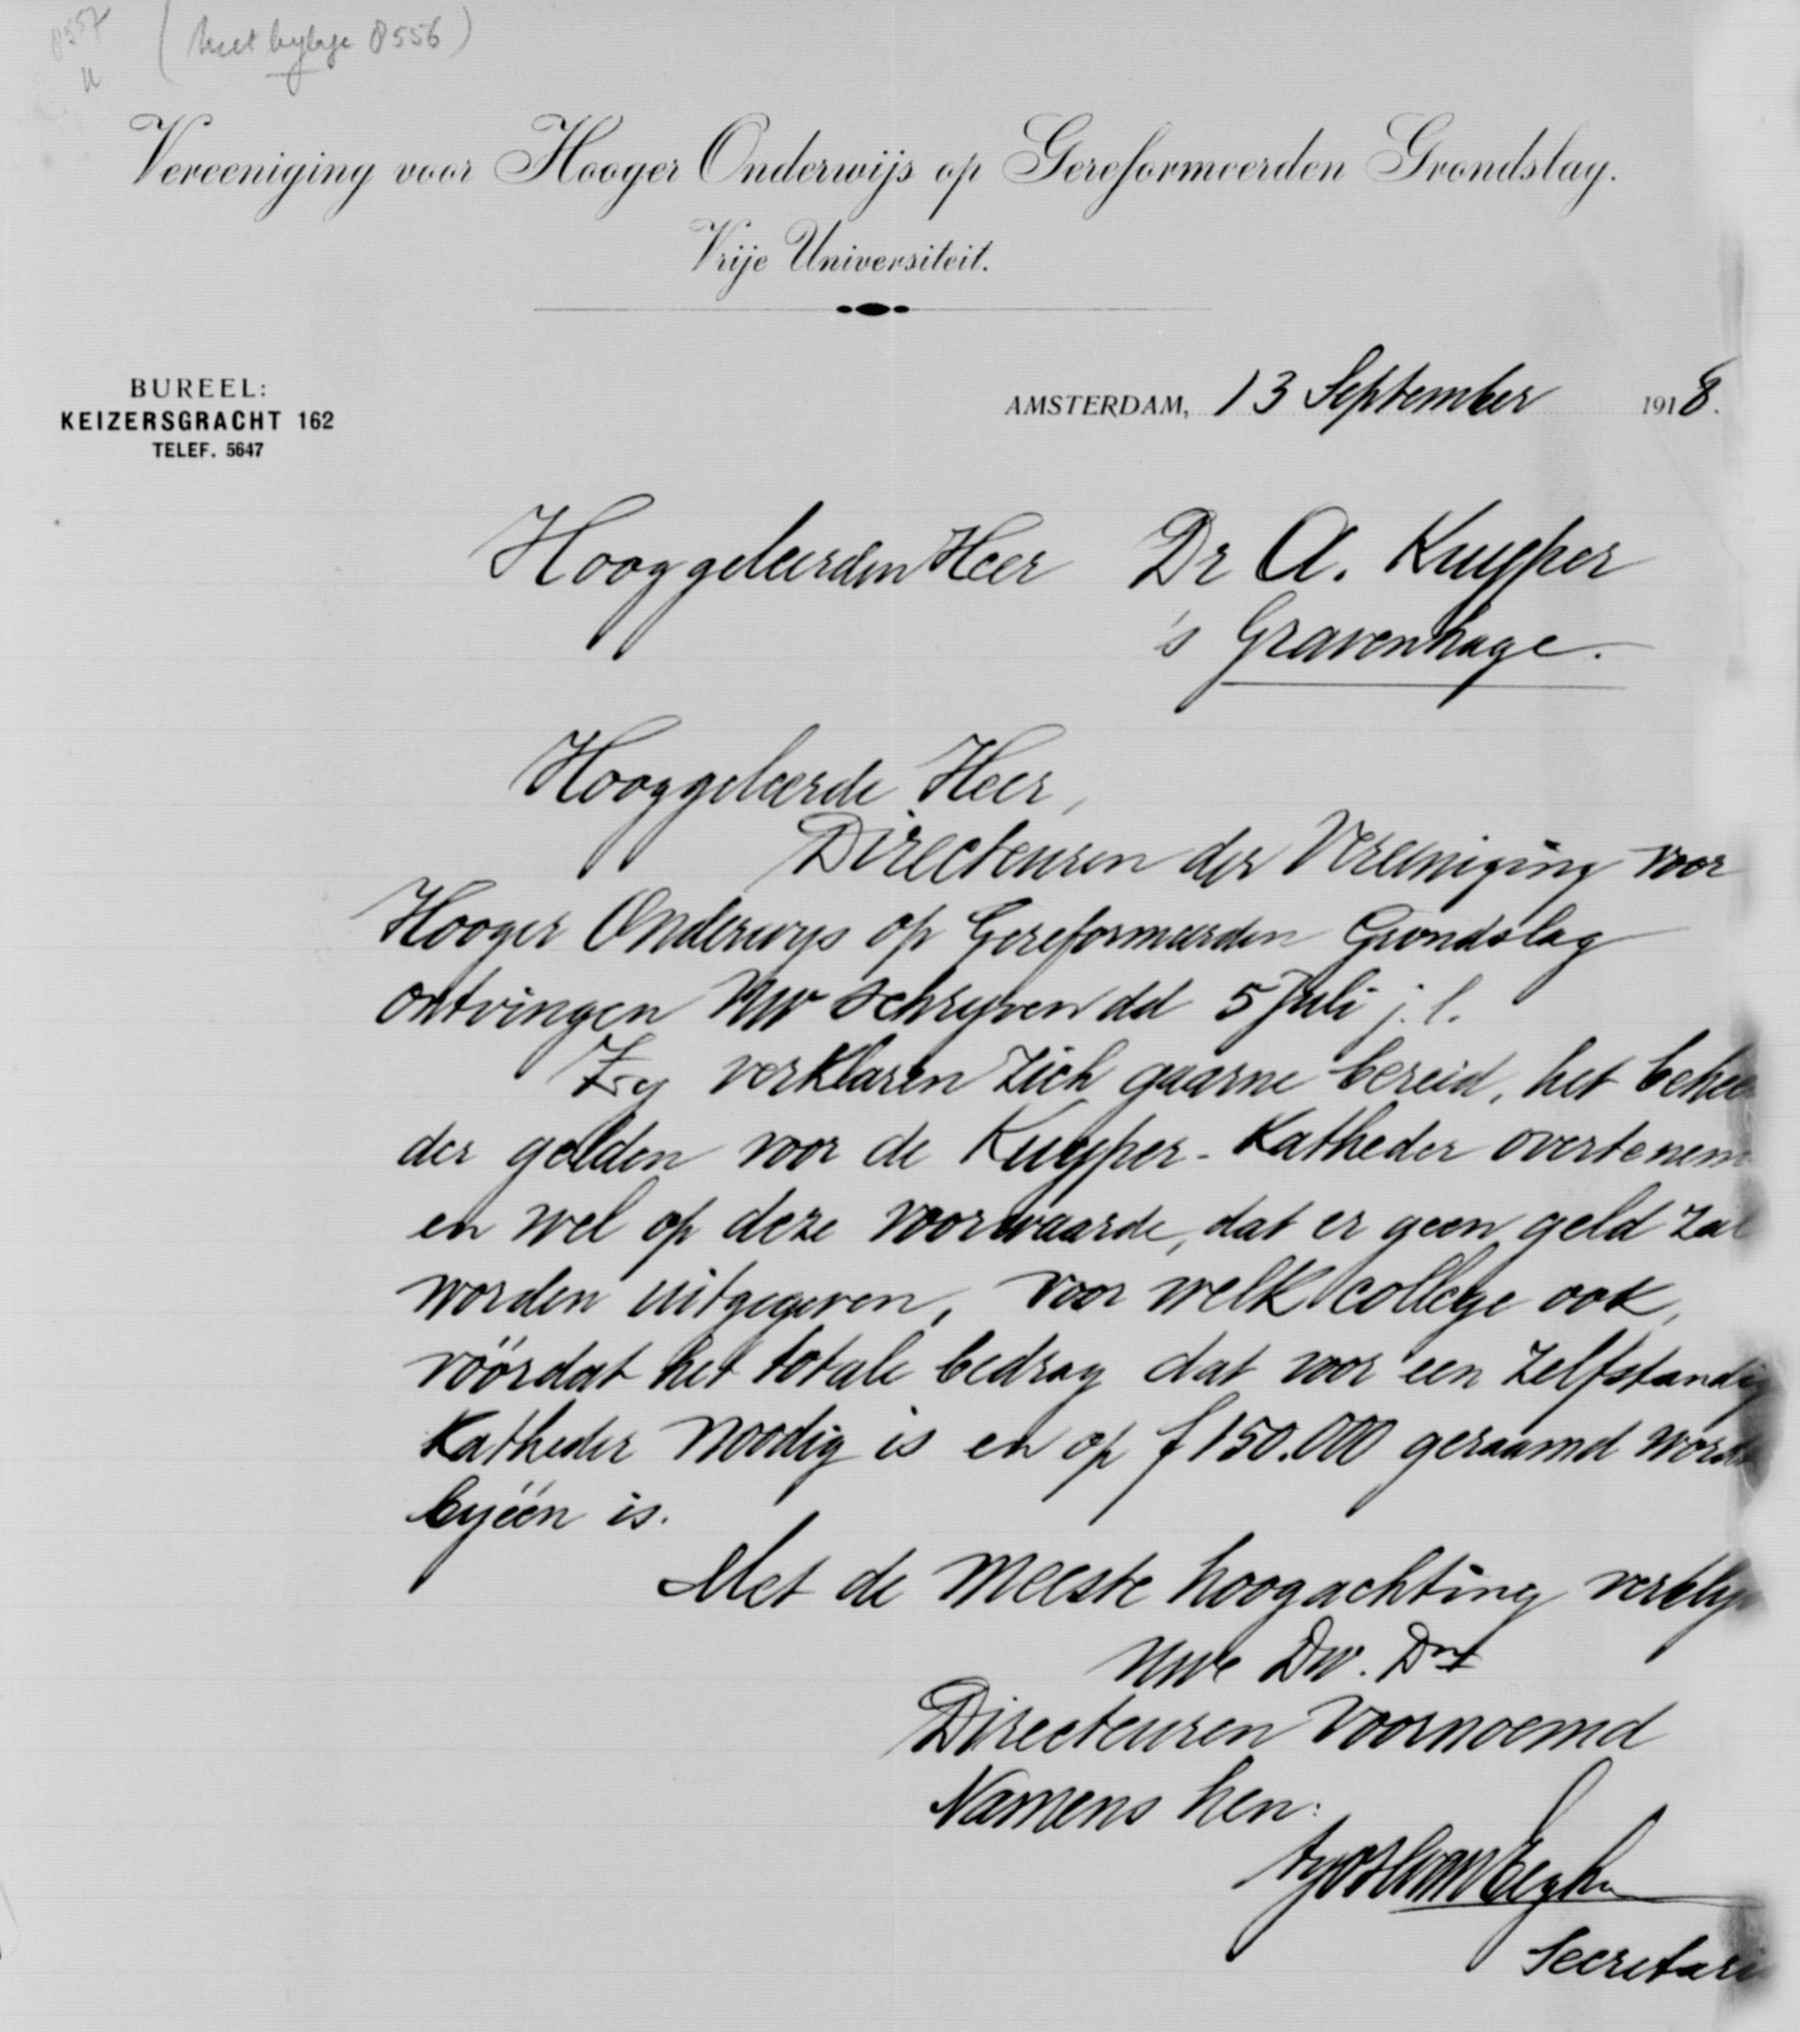 8557
(met bylage 8556)
Vereeniging voor Hooger Onderwijs op Gereformeerden Grondslag.
Vrije Universiteit.
BUREEL:
KEIZERSGRACHT 162
TELEF. 5647
AMSTERDAM, 13 September 1918.
Hooggeleerden Heer Dr A. Kuyper
's Gravenhage.
Hooggeleerde Heer,
Directeuren der Vereeniging voor
Hooger Onderwys op Gereformeerden Grondslag
ontvingen Uw schryven dd 5 Juli j.l.
Zy verklaren zich gaarne bereid, het behee
der gelden voor de Kuyper-Katheder overtenem
en wel op deze voorwaarde, dat er geen geld zal
worden uitgegeven, voor welk college ook,
vóórdat het totale bedrag dat voor een zelfstandig
Katheder noodig is en op f 150.000 geraamd word
byéén is.
Met de meeste hoogachting verbly
Uwe Dw. Dnt
Directeuren voornoemd
Namens hen:
Secretari